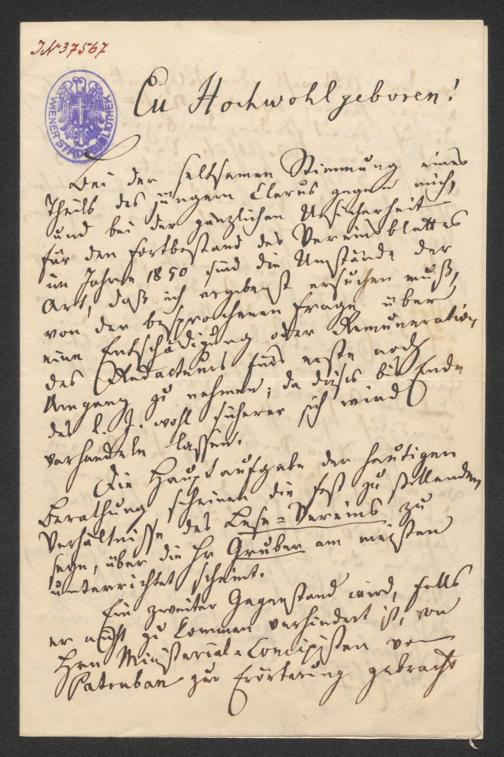 IN 37567
WIENER STADT
Eu Hochwohlgeboren!
Bei der seltsamen Stimmung eines
Theils des jüngern Clerus gegen mich,
und bei der gänzlichen Unsicherheit
für den Fortbestand des Vereinsblattes
im Jahre 1850 sind die Umstände der
Art, daß ich ergebenst ersuchen muß,
von der besprochenen Frage über
eine Entschädigung oder Remuneration
des Redacteurs fürs erste noch
Umgang zu nehmen; da dieses bis Ende
des l. J. wohl sicherer sich wird
verhandeln lassen.
Die Hauptaufgabe der heutigen
Berathung scheinen die fest zu stellenden
Verhältnisse des Lese-Vereins zu
seyn, über die Hr Gruber am meisten
unterrichtet scheint.
Ein zweiter Gegenstand wird, falls
er nicht zu kommen verhindert ist, von
Hrn Ministerial-Concipisten von
Patruban zur Erörterung gebracht